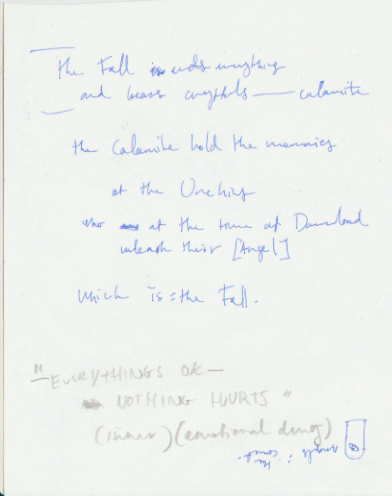 the Fall ends everything
and leaves crystals — calamite
the Calamite hold the memories
at the
who at the time of Download
unleash their [Angel]
which is = the Fall.
"EVERYTHINGS OK —
NOTHING HURTS"
(inner) (emotional drug)